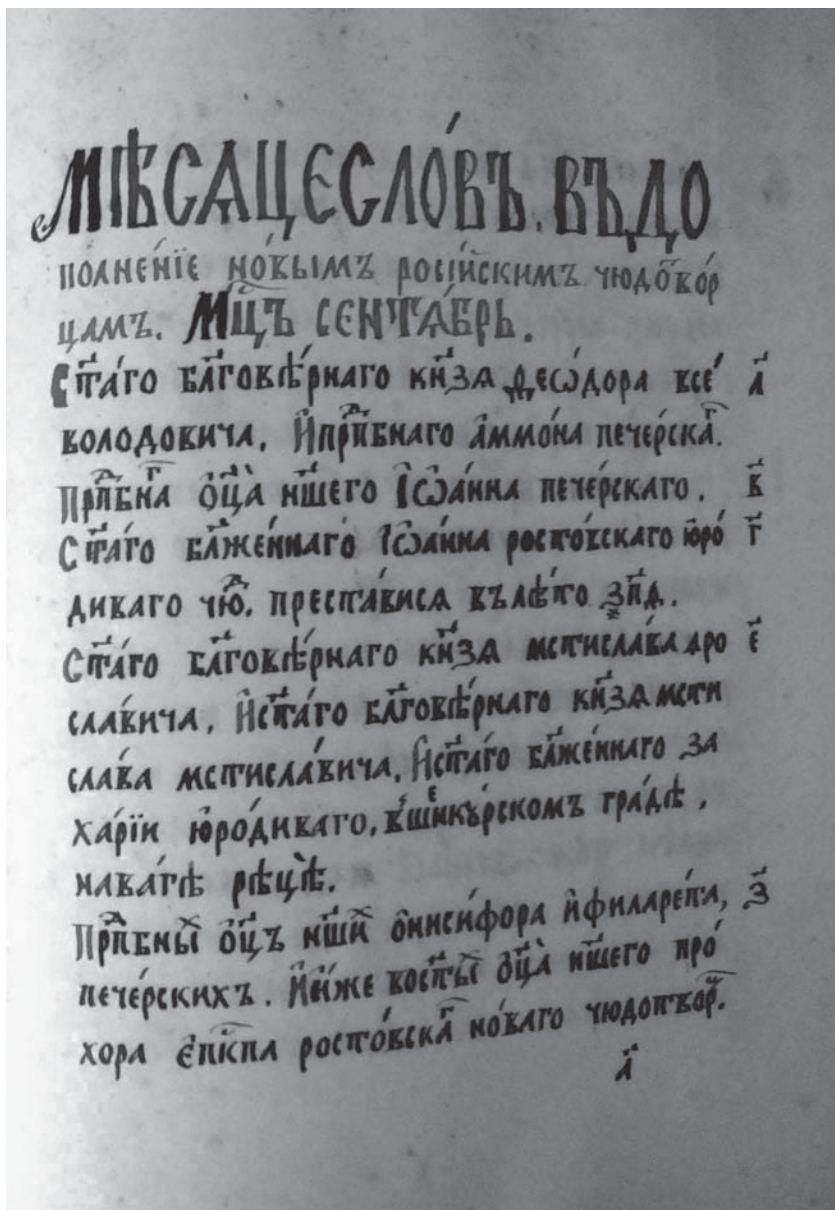 МѢСѦЦЕСЛО́ВЪ. ВЪДО
полне́нїе но́вымъ росі́йскимъ чюдоⷮво́р
цамъ. Мц҃ъ сентѧ́брь.
Ст҃а́го бл҃говѣ́рнаго кн҃зѧ ѳео́дора все́ а҃
володовича. И҆прпⷣбнаго а҆ммо́на пече́рскаⷢ.
Прпⷣбнаⷢ ѻ҆ц҃а̀ нш҃его і҆ѡа́нна пече́рскаго. в҃
Ст҃а́го бл҃же́ннаго і҆ѡа́нна росто́вскаго ю҆ро́ г҃
диваго чюⷣ. преста́висѧ влѣ́то ҂зп҃д.
Ст҃а́го бл҃говѣ́рнаго кн҃зѧ мстисла́ва ꙗро є҃
сла́вича. И҆ст҃а́го бл҃говѣ́рнаго кн҃зѧ мсти
сла́ва мстисла́вича. И҆ст҃а́го бл҃же́ннаго за
ха́рїи ю҆ро́диваго, вше́нку́рскомъ гра́дѣ,
нава́гѣ рѣцѣ̀.
Прпⷣбныⷯ ѻ҆ц҃ъ нш҃иⷯ ѻ҆ниси́фора и҆филаре́та, з҃
пече́рскихъ. И҆и҆́же вост҃ыⷯ ѻ҆ц҃а̀ нш҃его про́
хора є҆пк҃па росто́вскаⷢ но́ваго чюдотво́рⷰ.
а҃